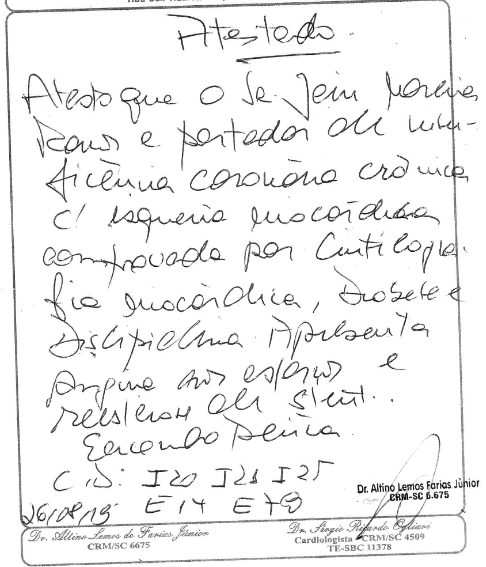 Atestado.
Atesto que o Sr. Jem Moreira
e portador de insu-
ficiência coronária crônica
c/ isquemia miocárdica
comprovada por Cintilogra
fia miocárdica, Diabete e
Dislipidemia Apresenta
Angina aos esforços e
de stent.
C.D: I20 I21 I25
26/08/19 E14 E78
Dr. Altino Lemos Farias Júnior
CRM-SC 6.675
Dr. Altino Lemos de Farias Júnior
CRM/SC 6675
Dr. Sérgio Ricardo Ogliari
Cardiologista CRM/SC 4509
TE-SBC 11378